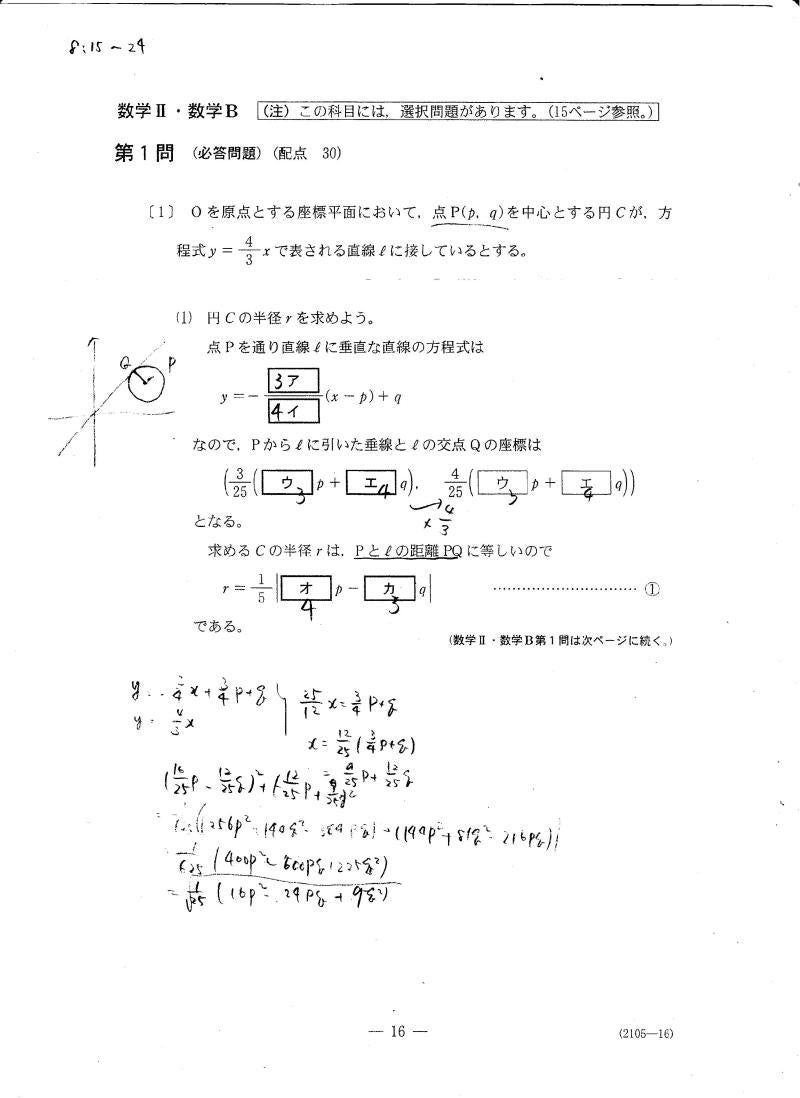 8:15 ~ 24
数学Ⅱ・数学B （注）この科目には，選択問題があります。（15ページ参照。）
第1問 （必答問題）（配点 30）
〔1〕 Oを原点とする座標平面において，点P(p, q)を中心とする円Cが，方
程式y = 4/3 x で表される直線ℓに接しているとする。
(1) 円Cの半径rを求めよう。
点Pを通り直線ℓに垂直な直線の方程式は
Q P
y = - 3ア/4イ (x - p) + q
なので，Pからℓに引いた垂線とℓの交点Qの座標は
(3/25 (ウ3 p + エ4 q), 4/25 (ウ3 p + エ4 q))
となる。 × 4/3
求めるCの半径rは，Pとℓの距離PQに等しいので
r = 1/5 |オ4 p - カ3 q| ………………………… ①
である。
（数学Ⅱ・数学B第1問は次ページに続く。）
y = -3/4 x + 3/4 p + q 25/12 x = 3/4 p + q
y = 4/3 x x = 12/25 (3/4 p + q)
= 9/25 p + 12/25 q
(16/25 p - 12/25 q)² + (-12/25 p + 9/25 q)²
(400p² - 600pq + 225q²)
(16p² - 24pq + 9q²)
— 16 —
(2105—16)